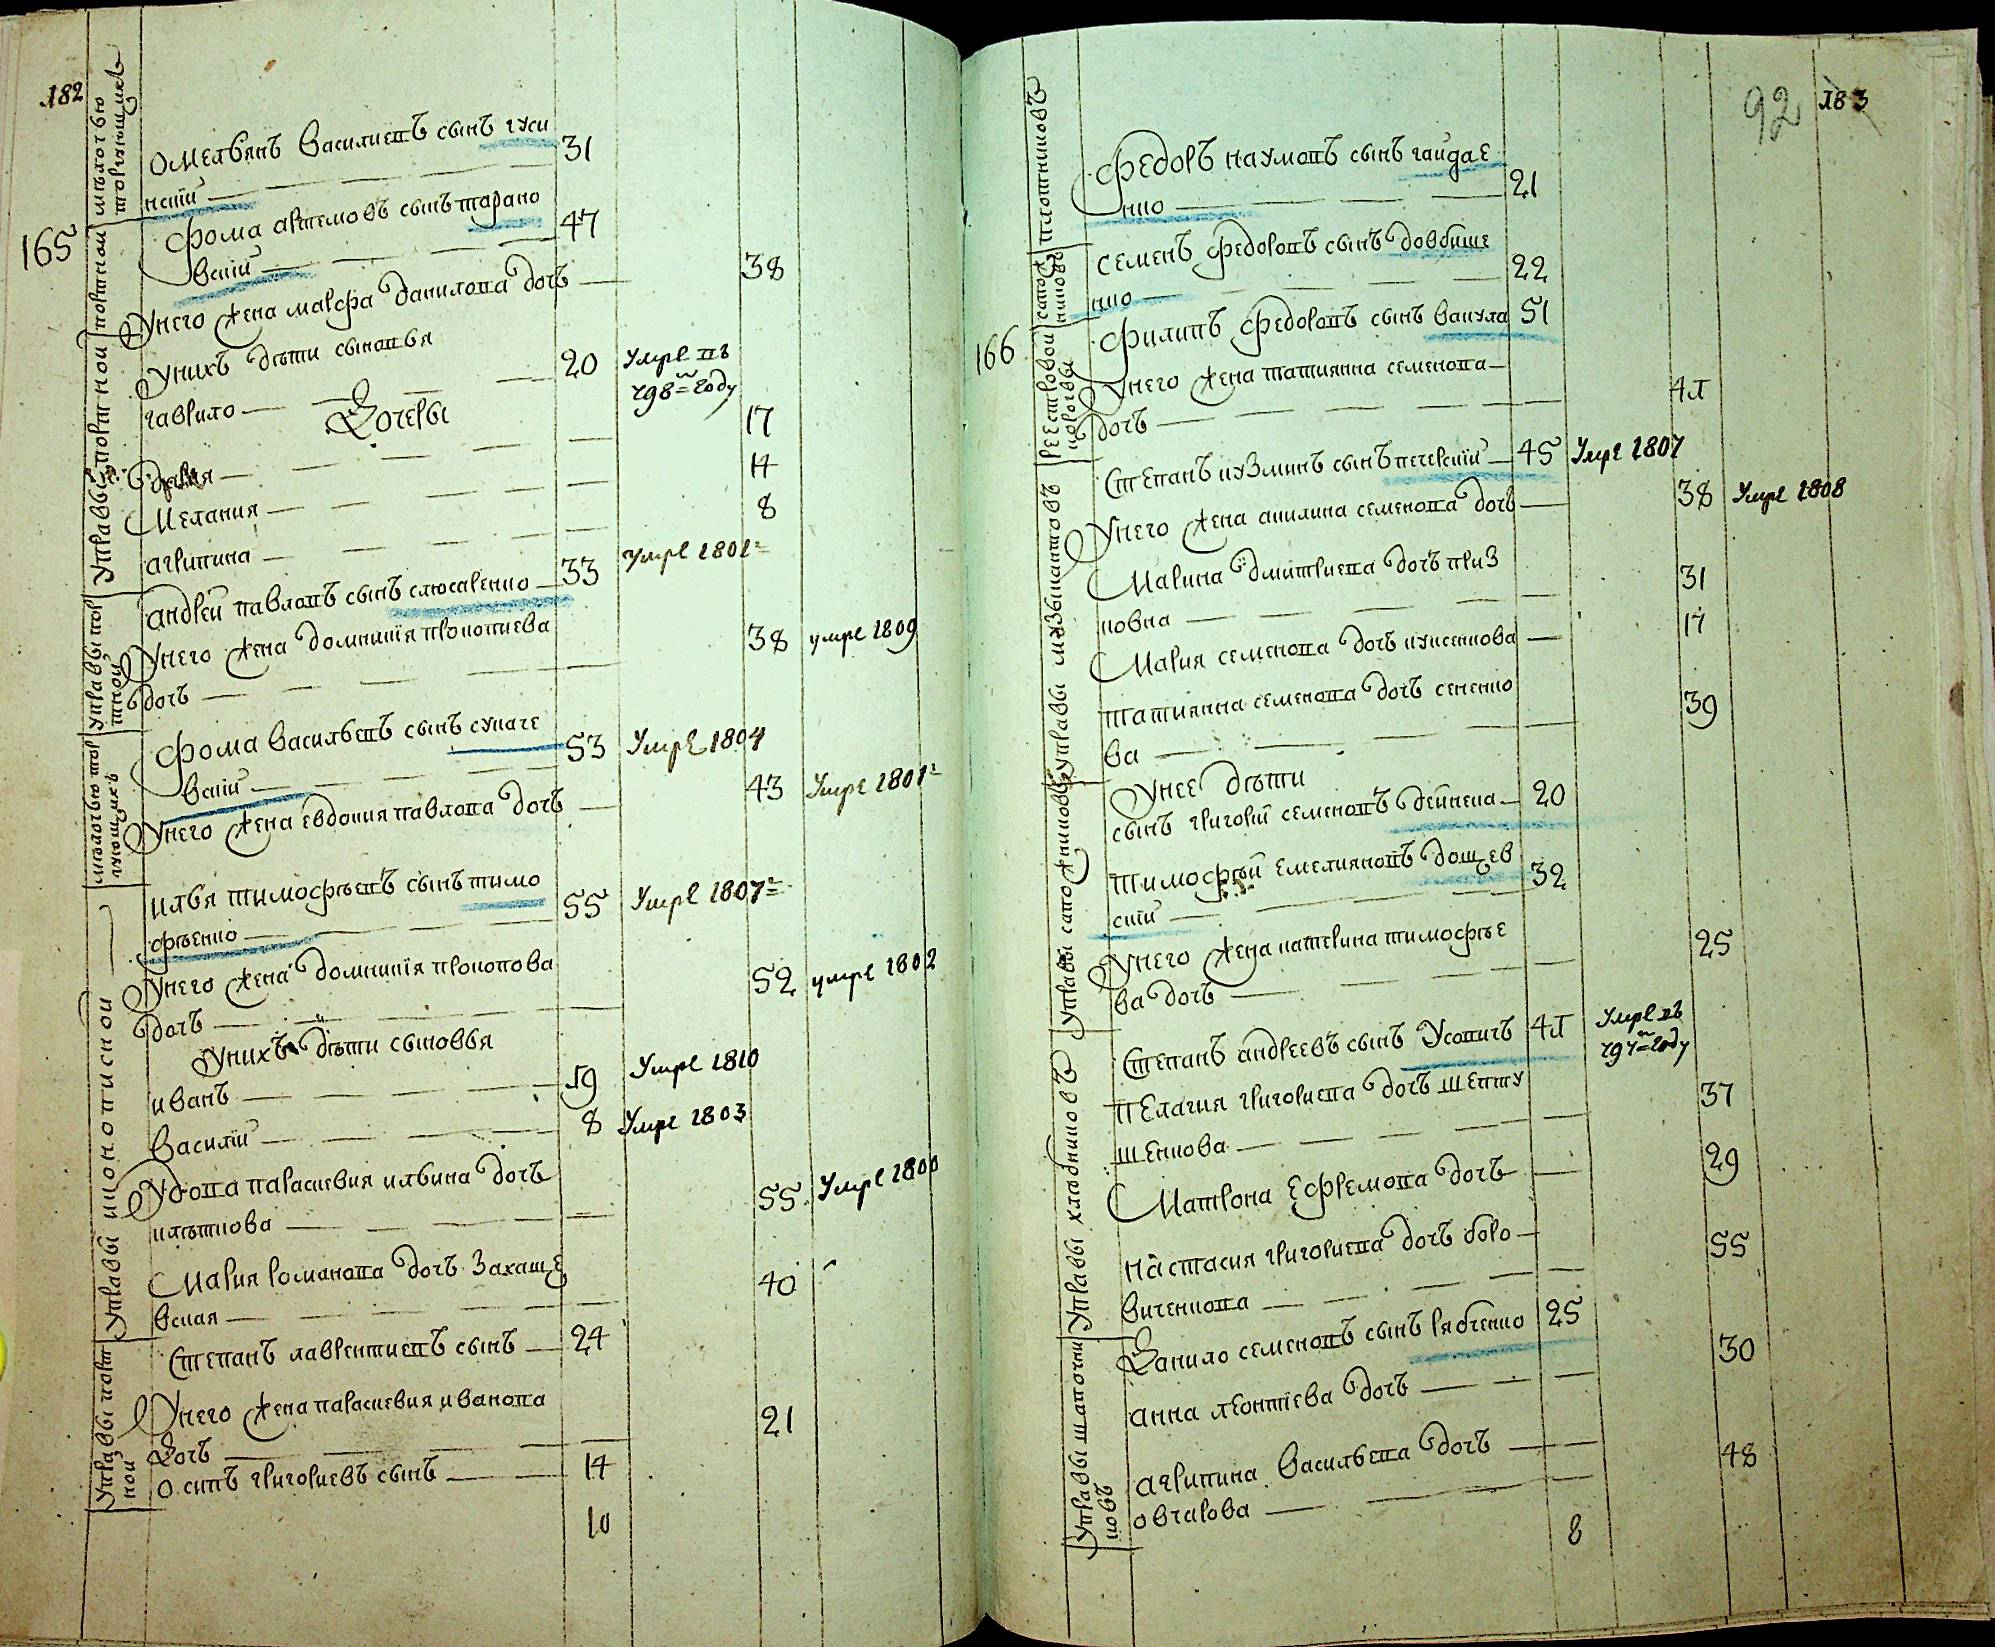 182
мѣлочью торгующихъ
Омельянъ Василиевъ сынъ гуси
нскій 31
165
портной
Фома артемовъ сынъ тарано
вскій 47
Унего жена марфа данилова дочь 38
Управы портной
Унихъ дѣти сыновья
гаврило 20 Умре въ 798=м году
Дочеры
дария 17
Мелания 14
агрипина 8
Управы портной
андрей павловъ сынъ слюсаренко 33 умре 1801=
Унего жена домникія прокопиева 38 умре 1809
дочь
мѣлочью торгующихъ
Фома васильевъ сынъ сукаче
вскій 53 Умре 1804
Унего жена евдокия павлова дочь 43 Умре 1801=
Управы иконописной
илья тимофѣевъ сынъ тимо
фѣенко 55 Умре 1807=
Унего жена домникія прокопова
дочь 52 умре 1802
Унихъ дѣти сыновья
иванъ 19 Умре 1810
Василій 8 Умре 1803
Удова параскевия ильина дочь
55 Умре 1800
Мария романова дочь Захаще
вская 40
Управы портной
Степанъ лаврентиевъ сынъ 24
Унего жена параскевия иванова
дочь 21
Осипъ григориевъ сынъ 14
10
92 183
плотниковъ
Федоръ наумовъ сынъ гайдае
нко 21
сапожниковъ
семенъ федоровъ сынъ довбише
нко 22
166
реестровой
Филипъ федоровъ сынъ вакула 51
Унего жена татиянна семенова
дочь 41
Управы музыкантовъ
Степанъ кузминъ сынъ печерскій 45 Умре 1807
Унего жена акилина семенова дочь 38 Умре 1808
Марина дмитриева дочь приз
новна 31
Мария семенова дочь куксенкова 17
татиянна семенова дочь сененко
ва 39
Управы сапожниковъ
Унее дѣти
сынъ григорій семеновъ дейнека 20
тимофѣй емелияновъ дощев
скій 32
Унего жена катерина тимофѣе
ва дочь 25
Управы хлѣбниковъ
Степанъ андреевъ сынъ Усовичъ 41 Умре въ 794=м году
пелагия григориева дочь шепту
шенкова 37
Матрона Ефремова дочь 29
настасия григориева дочь боро
виченкова 55
Управы шапочниковъ
Данило семеновъ сынъ рябченко 25
анна леонтіева дочь 30
агрипина васильева дочь
овчарова 48
8